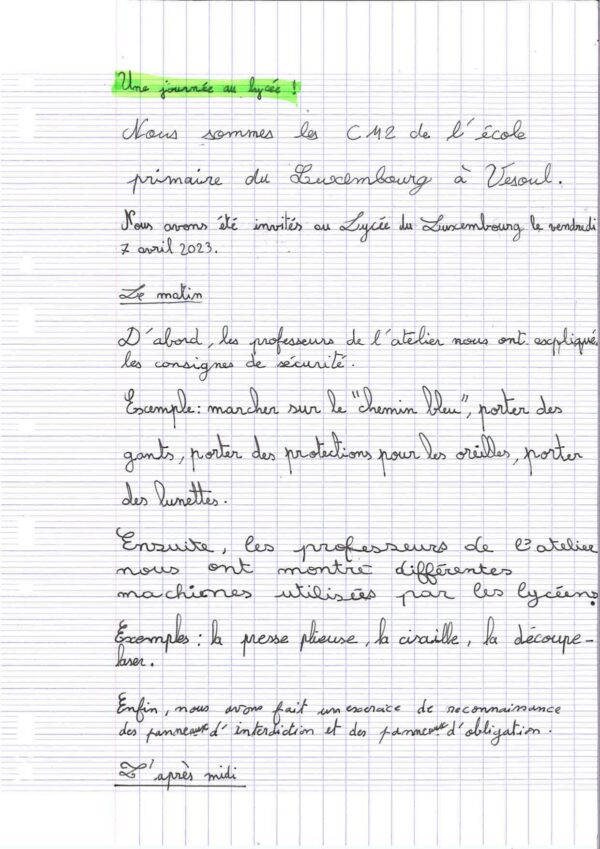 Une journée au lycée !
Nous sommes les CM2 de l'école
primaire du Luxembourg à Vesoul.
Nous avons été invités au Lycée du Luxembourg le vendredi
7 avril 2023.
Le matin
D'abord, les professeurs de l'atelier nous ont expliqué
les consignes de sécurité.
Exemple : marcher sur le "chemin bleu", porter des
gants, porter des protections pour les oreilles, porter
des lunettes.
Ensuite, les professeurs de l'atelier
nous ont montré différentes
machiones utilisées par les lycéens.
Exemples : la presse plieuse, la cisaille, la découpe-
laser.
Enfin, nous avons fait un exercice de reconnaissance
des panneaux d'interdiction et des panneaux d'obligation.
L'après midi